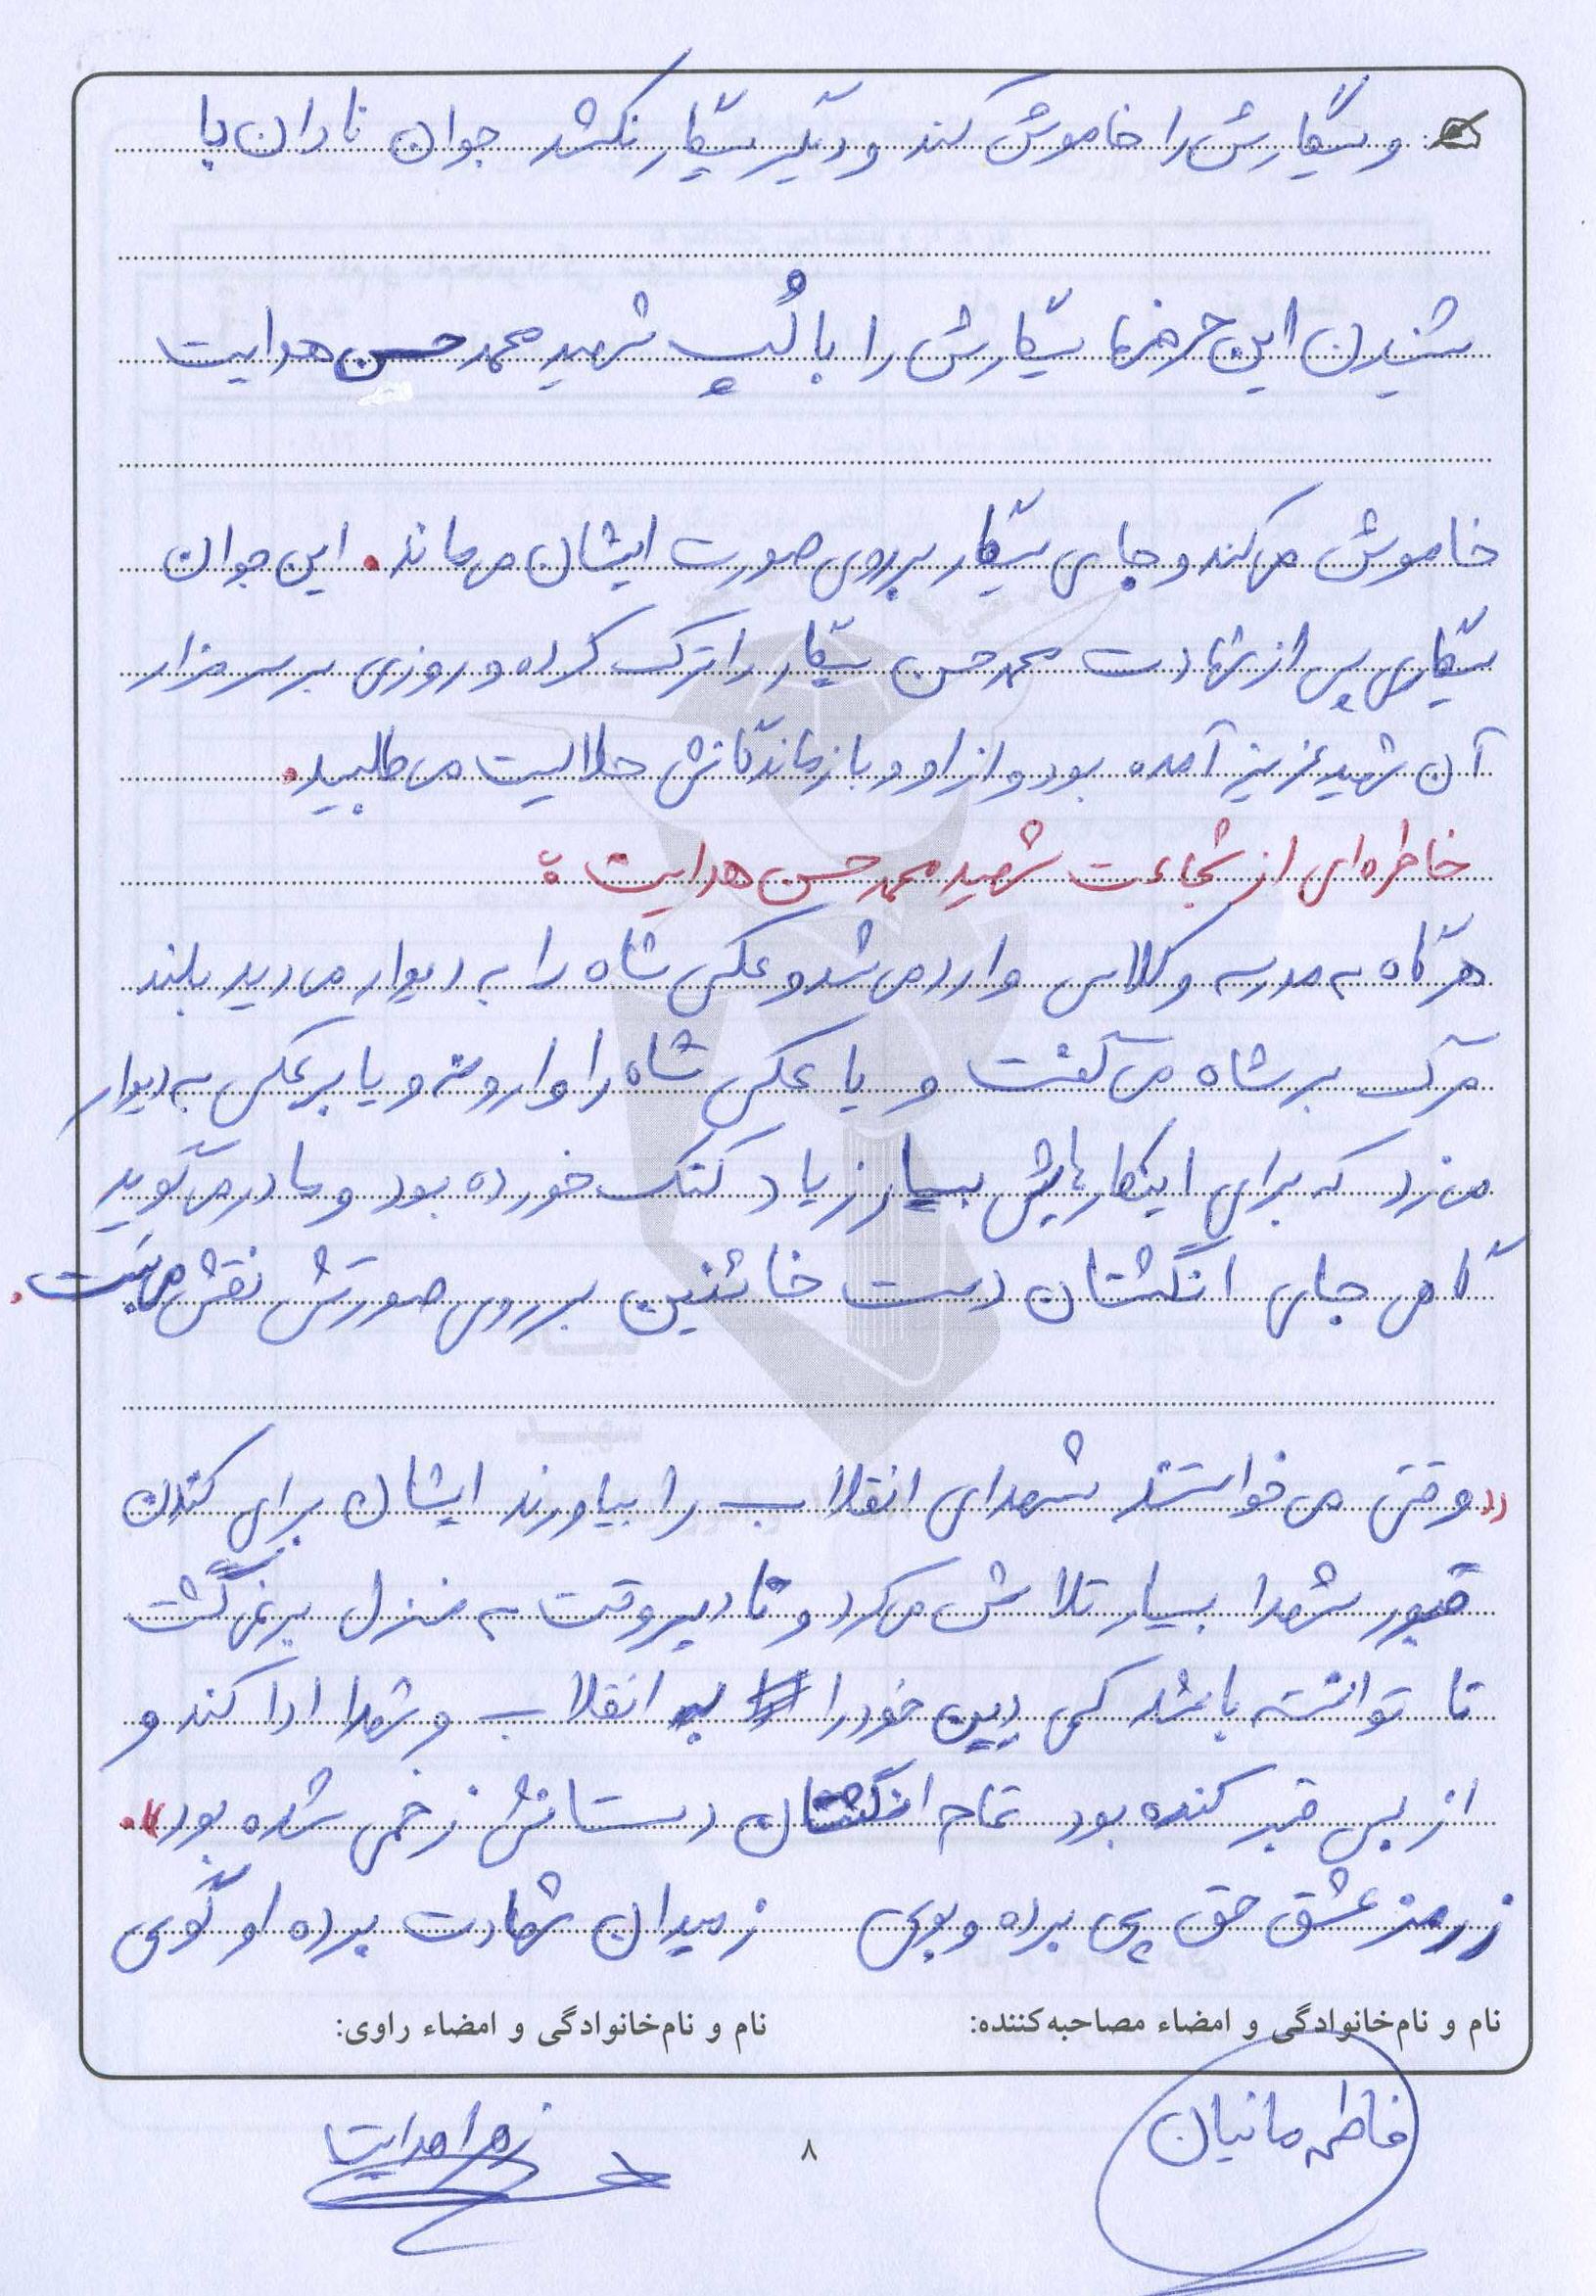 و سیگارش را خاموش کند و دیگر سیگار نکشد جوان نادان با
شنیدن این حرفها سیگارش را با لُپ شهید محمد حسن هدایت
خاموش می‌کند و جای سیگار بر روی صورت ایشان می‌ماند. این جوان
سیگاری پس از شهادت محمد حسن سیگار را ترک کرده و روزی بر سر مزار
آن شهید عزیز آمده بود و از او و بازماندگانش حلالیت می طلبید.
خاطره‌ای از شجاعت شهید محمد حسن هدایت :
هر گاه به مدرسه و کلاس وارد می شد و عکس شاه را به دیوار می دید بلند
مرگ بر شاه می گفت و یا عکس شاه را وارونه و یا برعکس به دیوار
می زد که برای اینکارهایش بسیار زیاد کتک خورده بود و مادر می گوید
گاهی جای انگشتان دست خائنین بر روی صورتش نقش می بست.
«وقتی می خواستند شهدای انقلاب را بیاورند ایشان برای کندن
قبور شهدا بسیار تلاش می کرد و تا دیر وقت به منزل برنمی گشت
تا توانسته باشد کمی دین خود را به انقلاب و شهدا ادا کند و
از بس قبر کنده بود تمام انگشتان دستانش زخمی شده بود».
ز رمز عشق حق پی برده و بویی ز میدان شهادت برده او گویی
نام و نام‌خانوادگی و امضاء مصاحبه‌کننده: نام و نام‌خانوادگی و امضاء راوی:
فاطمه مانیان زهرا هدایت
۸